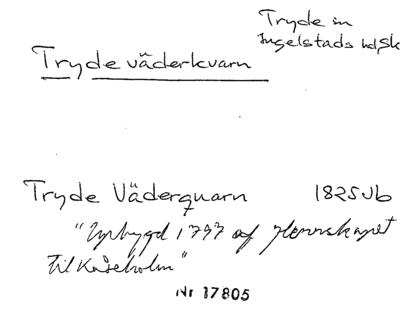 Tryde sn
Ingelstads hd, Sk
Tryde väderkvarn
Tryde Väderquarn 1825 Ub
"Upbygd 1797 af Herrskapet
til Kåseholm"
Nr 17805